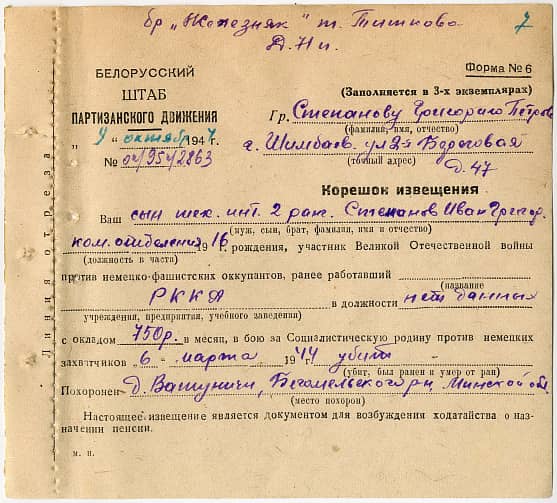 бр „Железняк" т. Титкова
7
Д.Н и.
БЕЛОРУССКИЙ
ШТАБ
ПАРТИЗАНСКОГО ДВИЖЕНИЯ
„ 4 " октябр 1947
№ 04/95/2863
Форма № 6
(Заполняется в 3-х экземплярах)
Гр. Степанову Григорию Петров
(фамилия, имя, отчество)
г. Шимбаев. ул 2-я Береговая
(точный адрес)
д. 47
Корешок извещения
Ваш сын тех. инт. 2 ранг. Степанов Иван Григор.
(муж, сын, брат, фамилия, имя и отчество)
ком. отделения 1916 г. рождения, участник Великой Отечественной войны
(должность в части)
против немецко-фашистских оккупантов, ранее работавший
(название
РККА в должности нет данных
учреждения, предприятия, учебного заведения)
с окладом 750р. в месяц, в бою за Социалистическую родину против немецких
захватчиков „6 - марта 1944 убит
(убит, был ранен и умер от ран)
Похоронен д. Вашуничи, Бегомельского рн, Минской обл
(место похорон)
Настоящее извещение является документом для возбуждения ходатайства о наз-
начении пенсии.
м. п.
Линия отреза